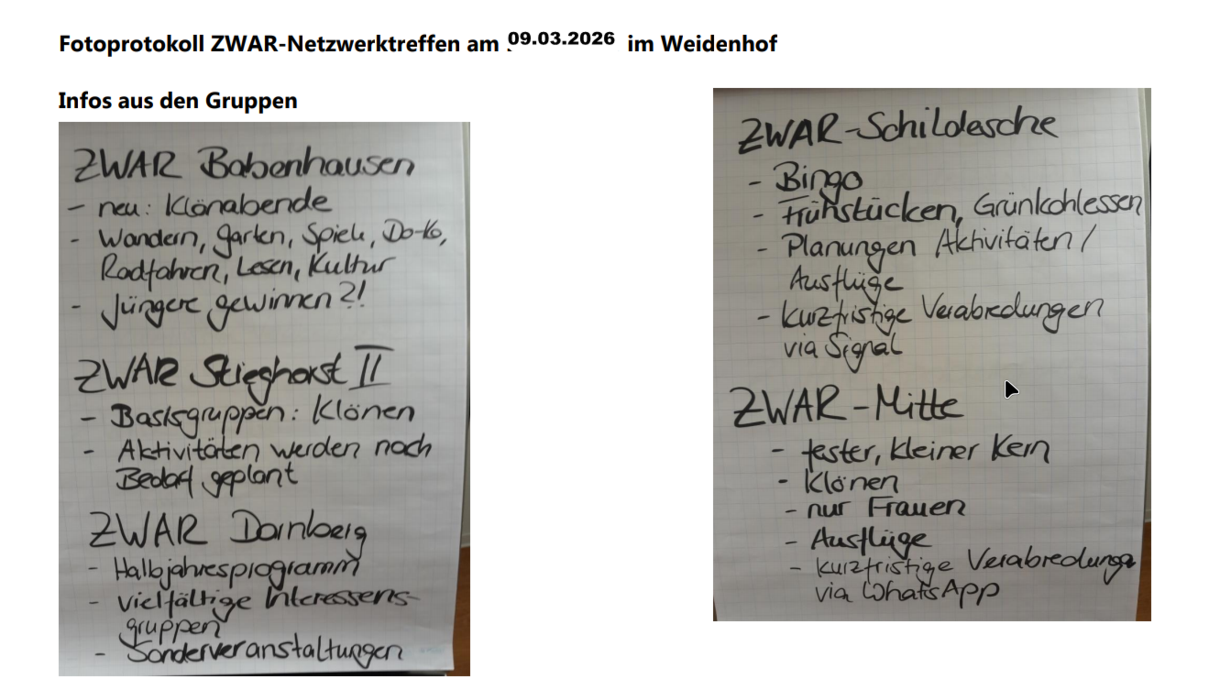 Fotoprotokoll ZWAR-Netzwerktreffen am 09.03.2026 im Weidenhof
Infos aus den Gruppen
ZWAR Babenhausen
- neu: Klönabende
- Wandern, Garten, Spiele, Do-Ko,
Radfahren, Lesen, Kultur
- Jüngere gewinnen?!
ZWAR Stieghorst II
- Basisgruppen: Klönen
- Aktivitäten werden nach
Bedarf geplant
ZWAR Dornberg
- Halbjahresprogramm
- vielfältige Interessens-
gruppen
- Sonderveranstaltungen
ZWAR-Schildesche
- Bingo
- Frühstücken, Grünkohlessen
- Planungen Aktivitäten/
Ausflüge
- kurzfristige Verabredungen
via Signal
ZWAR-Mitte
- fester, kleiner Kern
- Klönen
- nur Frauen
- Ausflüge
- kurzfristige Verabredungen
via WhatsApp